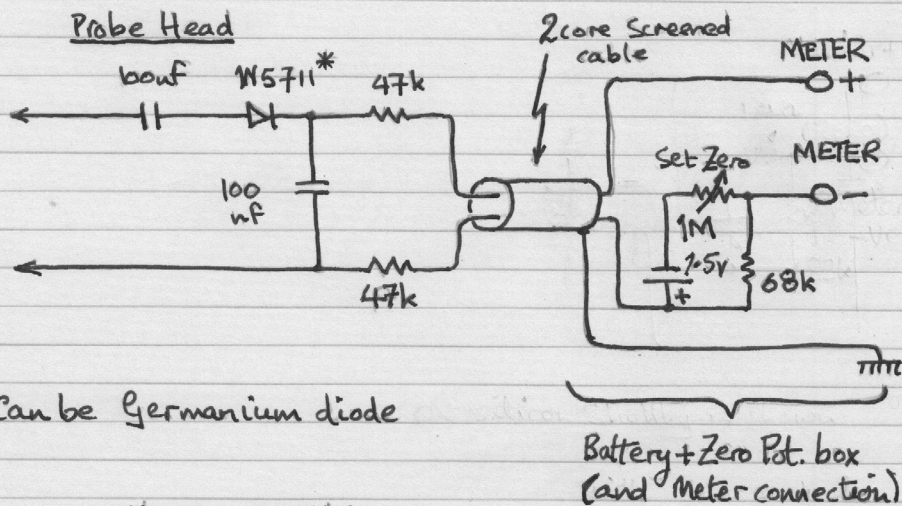 Probe Head
2 core screened
cable
METER
+
100nf
1N5711*
47k
Set Zero
METER
-
100
nf
1M
1.5v
+
68k
47k
Can be Germanium diode
Battery + Zero Pot. box
(and Meter connection)